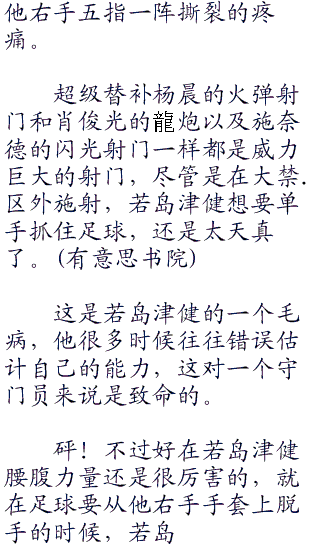 他右手五指一阵撕裂的疼
痛。
超级替补杨晨的火弹射
门和肖俊光的龍炮以及施奈
德的闪光射门一样都是威力
巨大的射门，尽管是在大禁.
区外施射，若岛津健想要单
手抓住足球，还是太天真
了。(有意思书院)
这是若岛津健的一个毛
病，他很多时候往往错误估
计自己的能力，这对一个守
门员来说是致命的。
砰！不过好在若岛津健
腰腹力量还是很厉害的，就
在足球要从他右手手套上脱
手的时候，若岛